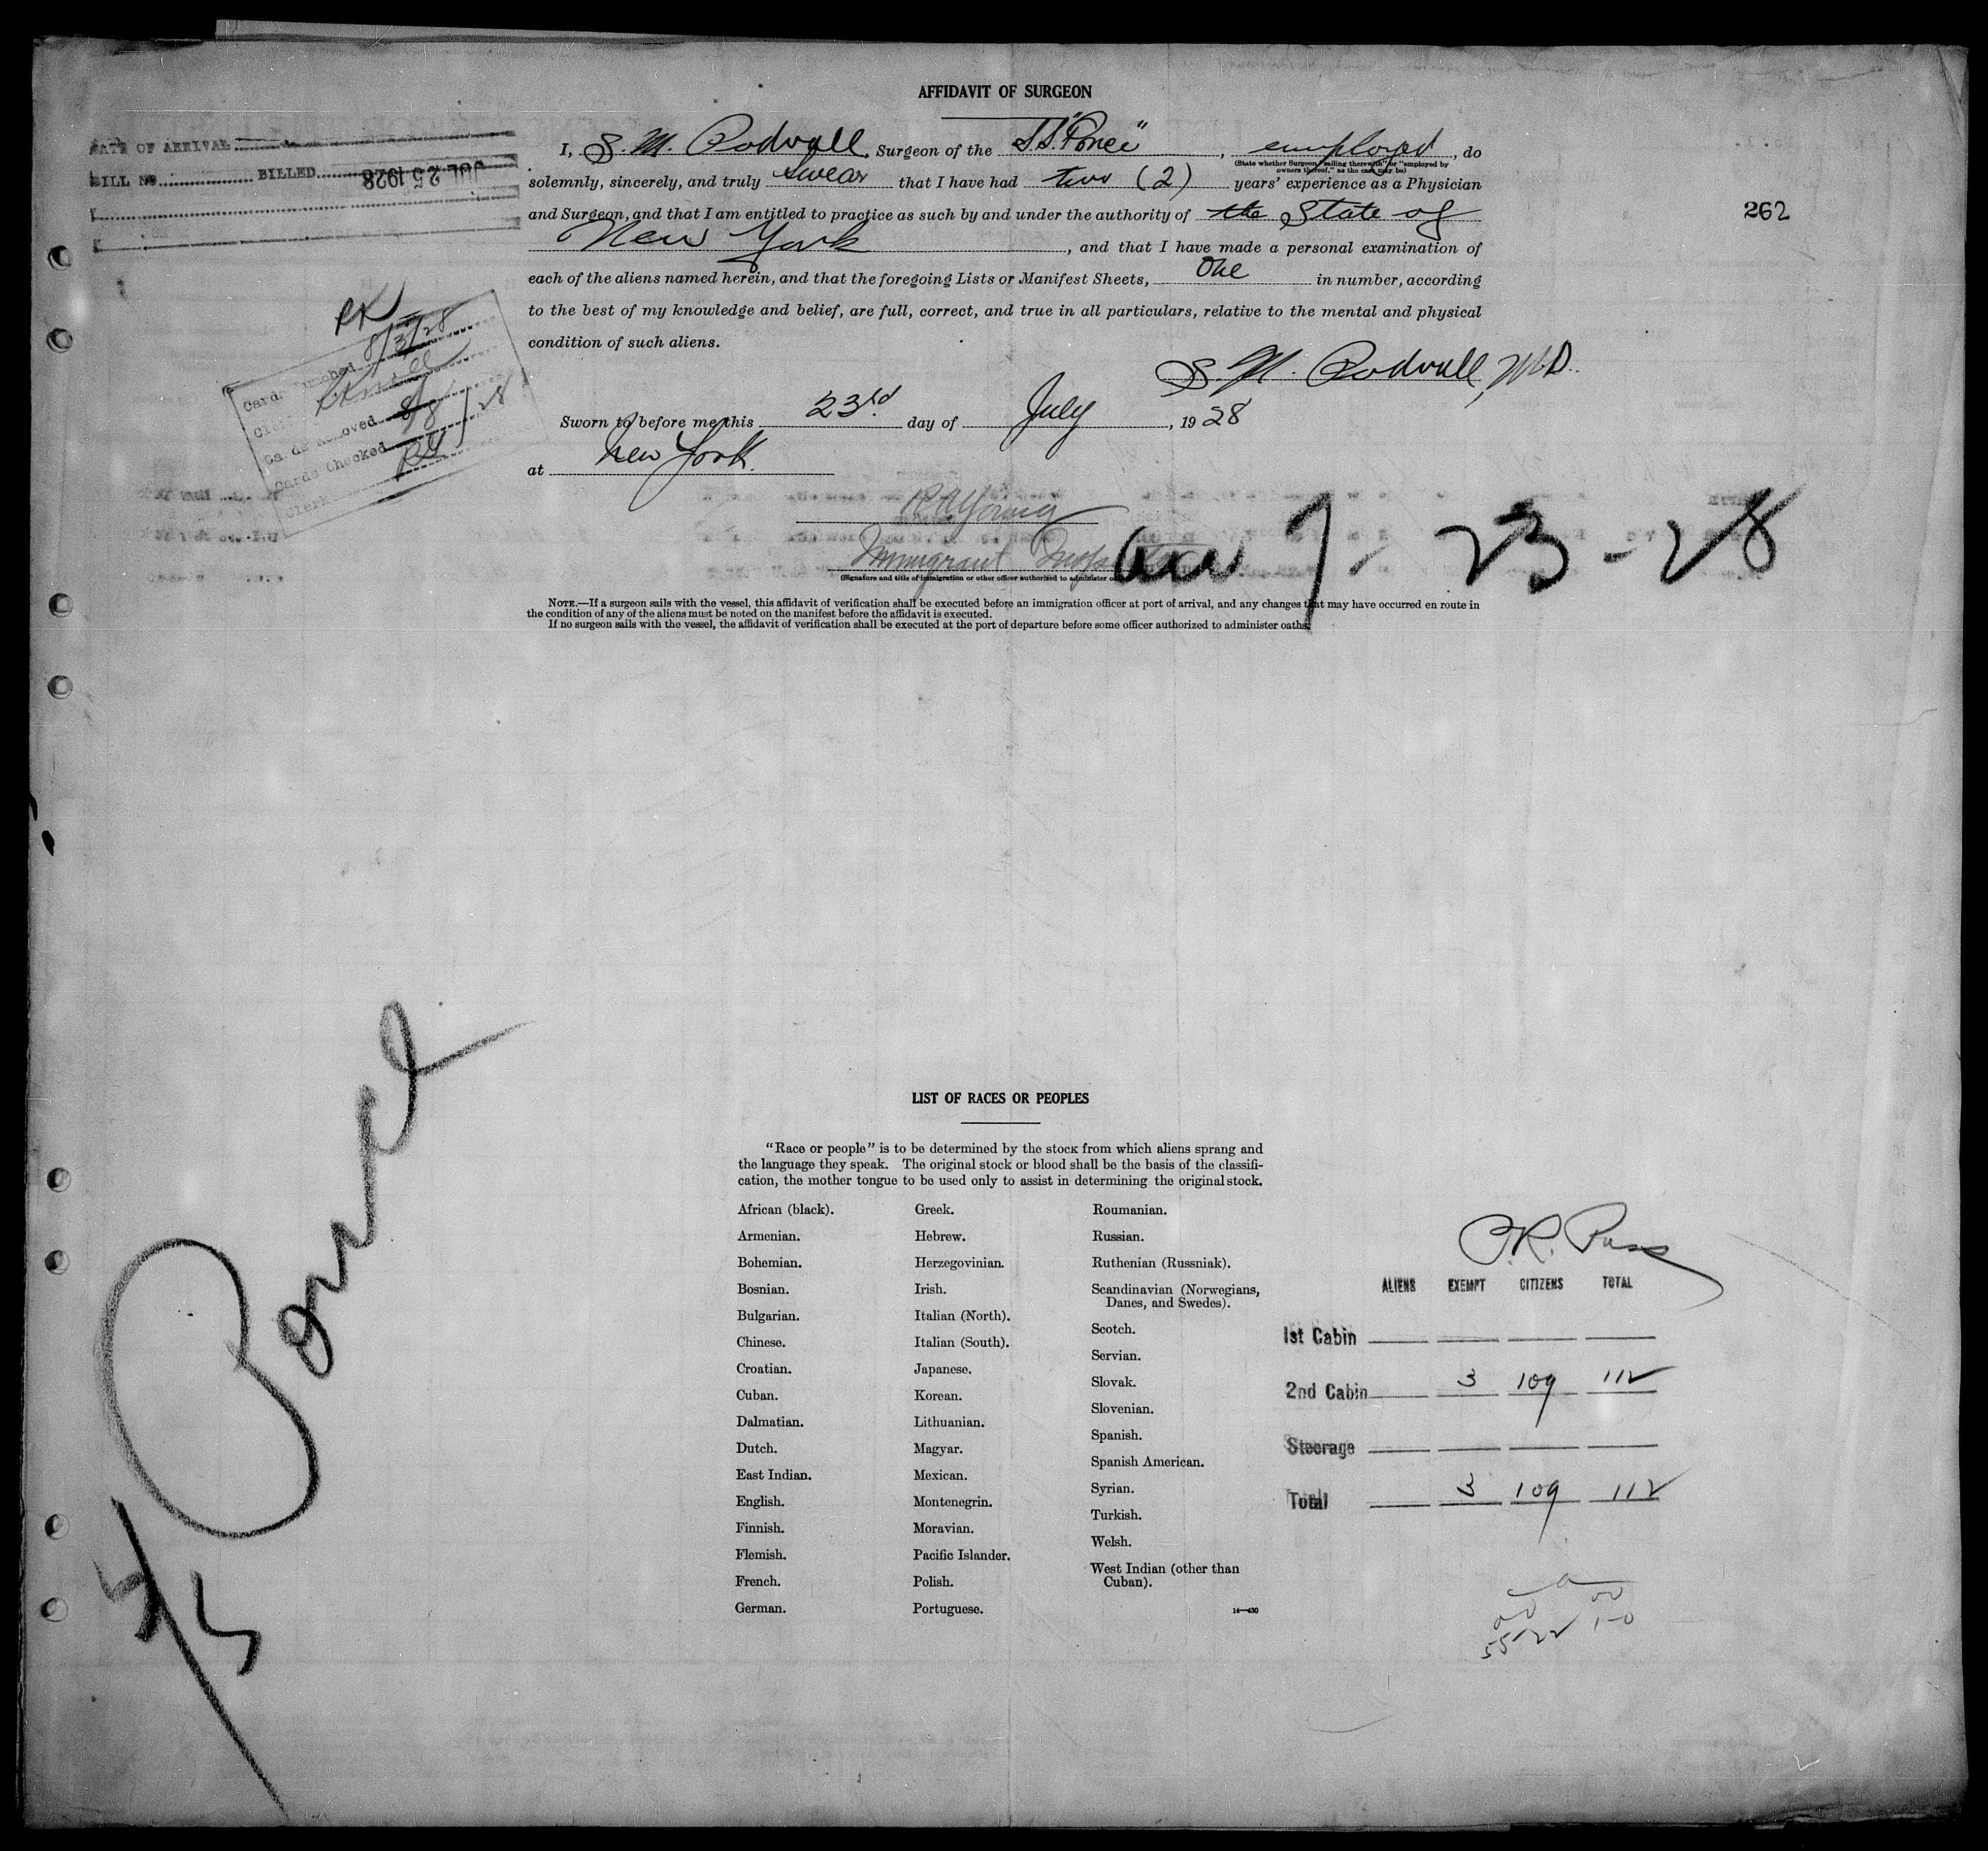 AFFIDAVIT OF SURGEON
DATE OF ARRIVAL
BILL NO. BILLED JUL 25 1928
I, S. M. Rodvall, Surgeon of the S.S. "Ponce", employed, do
(State whether Surgeon "sailing therewith" or "employed by owners thereof," as the case may be)
solemnly, sincerely, and truly swear that I have had two (2) years' experience as a Physician
and Surgeon, and that I am entitled to practice as such by and under the authority of the State of
262
New York, and that I have made a personal examination of
each of the aliens named herein, and that the foregoing Lists or Manifest Sheets, One in number, according
to the best of my knowledge and belief, are full, correct, and true in all particulars, relative to the mental and physical
condition of such aliens.
S. M. Rodvall, M.D.
Sworn to before me this 23rd day of July, 1928
at New York.
RK
Cards Punched 8/3/28
Clerk
Cards Removed
Cards Checked 8/8/28
Clerk
R A Young
Immigrant Inspector
(Signature and title of immigration or other officer authorized to administer
7-23-28
NOTE.—If a surgeon sails with the vessel, this affidavit of verification shall be executed before an immigration officer at port of arrival, and any changes that may have occurred en route in
the condition of any of the aliens must be noted on the manifest before the affidavit is executed.
If no surgeon sails with the vessel, the affidavit of verification shall be executed at the port of departure before some officer authorized to administer oaths.
Ponce
LIST OF RACES OR PEOPLES
"Race or people" is to be determined by the stock from which aliens sprang and
the language they speak. The original stock or blood shall be the basis of the classifi-
cation, the mother tongue to be used only to assist in determining the original stock.
African (black).
Armenian.
Bohemian.
Bosnian.
Bulgarian.
Chinese.
Croatian.
Cuban.
Dalmatian.
Dutch.
East Indian.
English.
Finnish.
Flemish.
French.
German.
Greek.
Hebrew.
Herzegovinian.
Irish.
Italian (North).
Italian (South).
Japanese.
Korean.
Lithuanian.
Magyar.
Mexican.
Montenegrin.
Moravian.
Pacific Islander.
Polish.
Portuguese.
Roumanian.
Russian.
Ruthenian (Russniak).
Scandinavian (Norwegians,
Danes, and Swedes).
Scotch.
Servian.
Slovak.
Slovenian.
Spanish.
Spanish American.
Syrian.
Turkish.
Welsh.
West Indian (other than
Cuban).
14—430
P.R. Pass
ALIENS EXEMPT CITIZENS TOTAL
1st Cabin
2nd Cabin 3 109 112
Steerage
Total 3 109 112